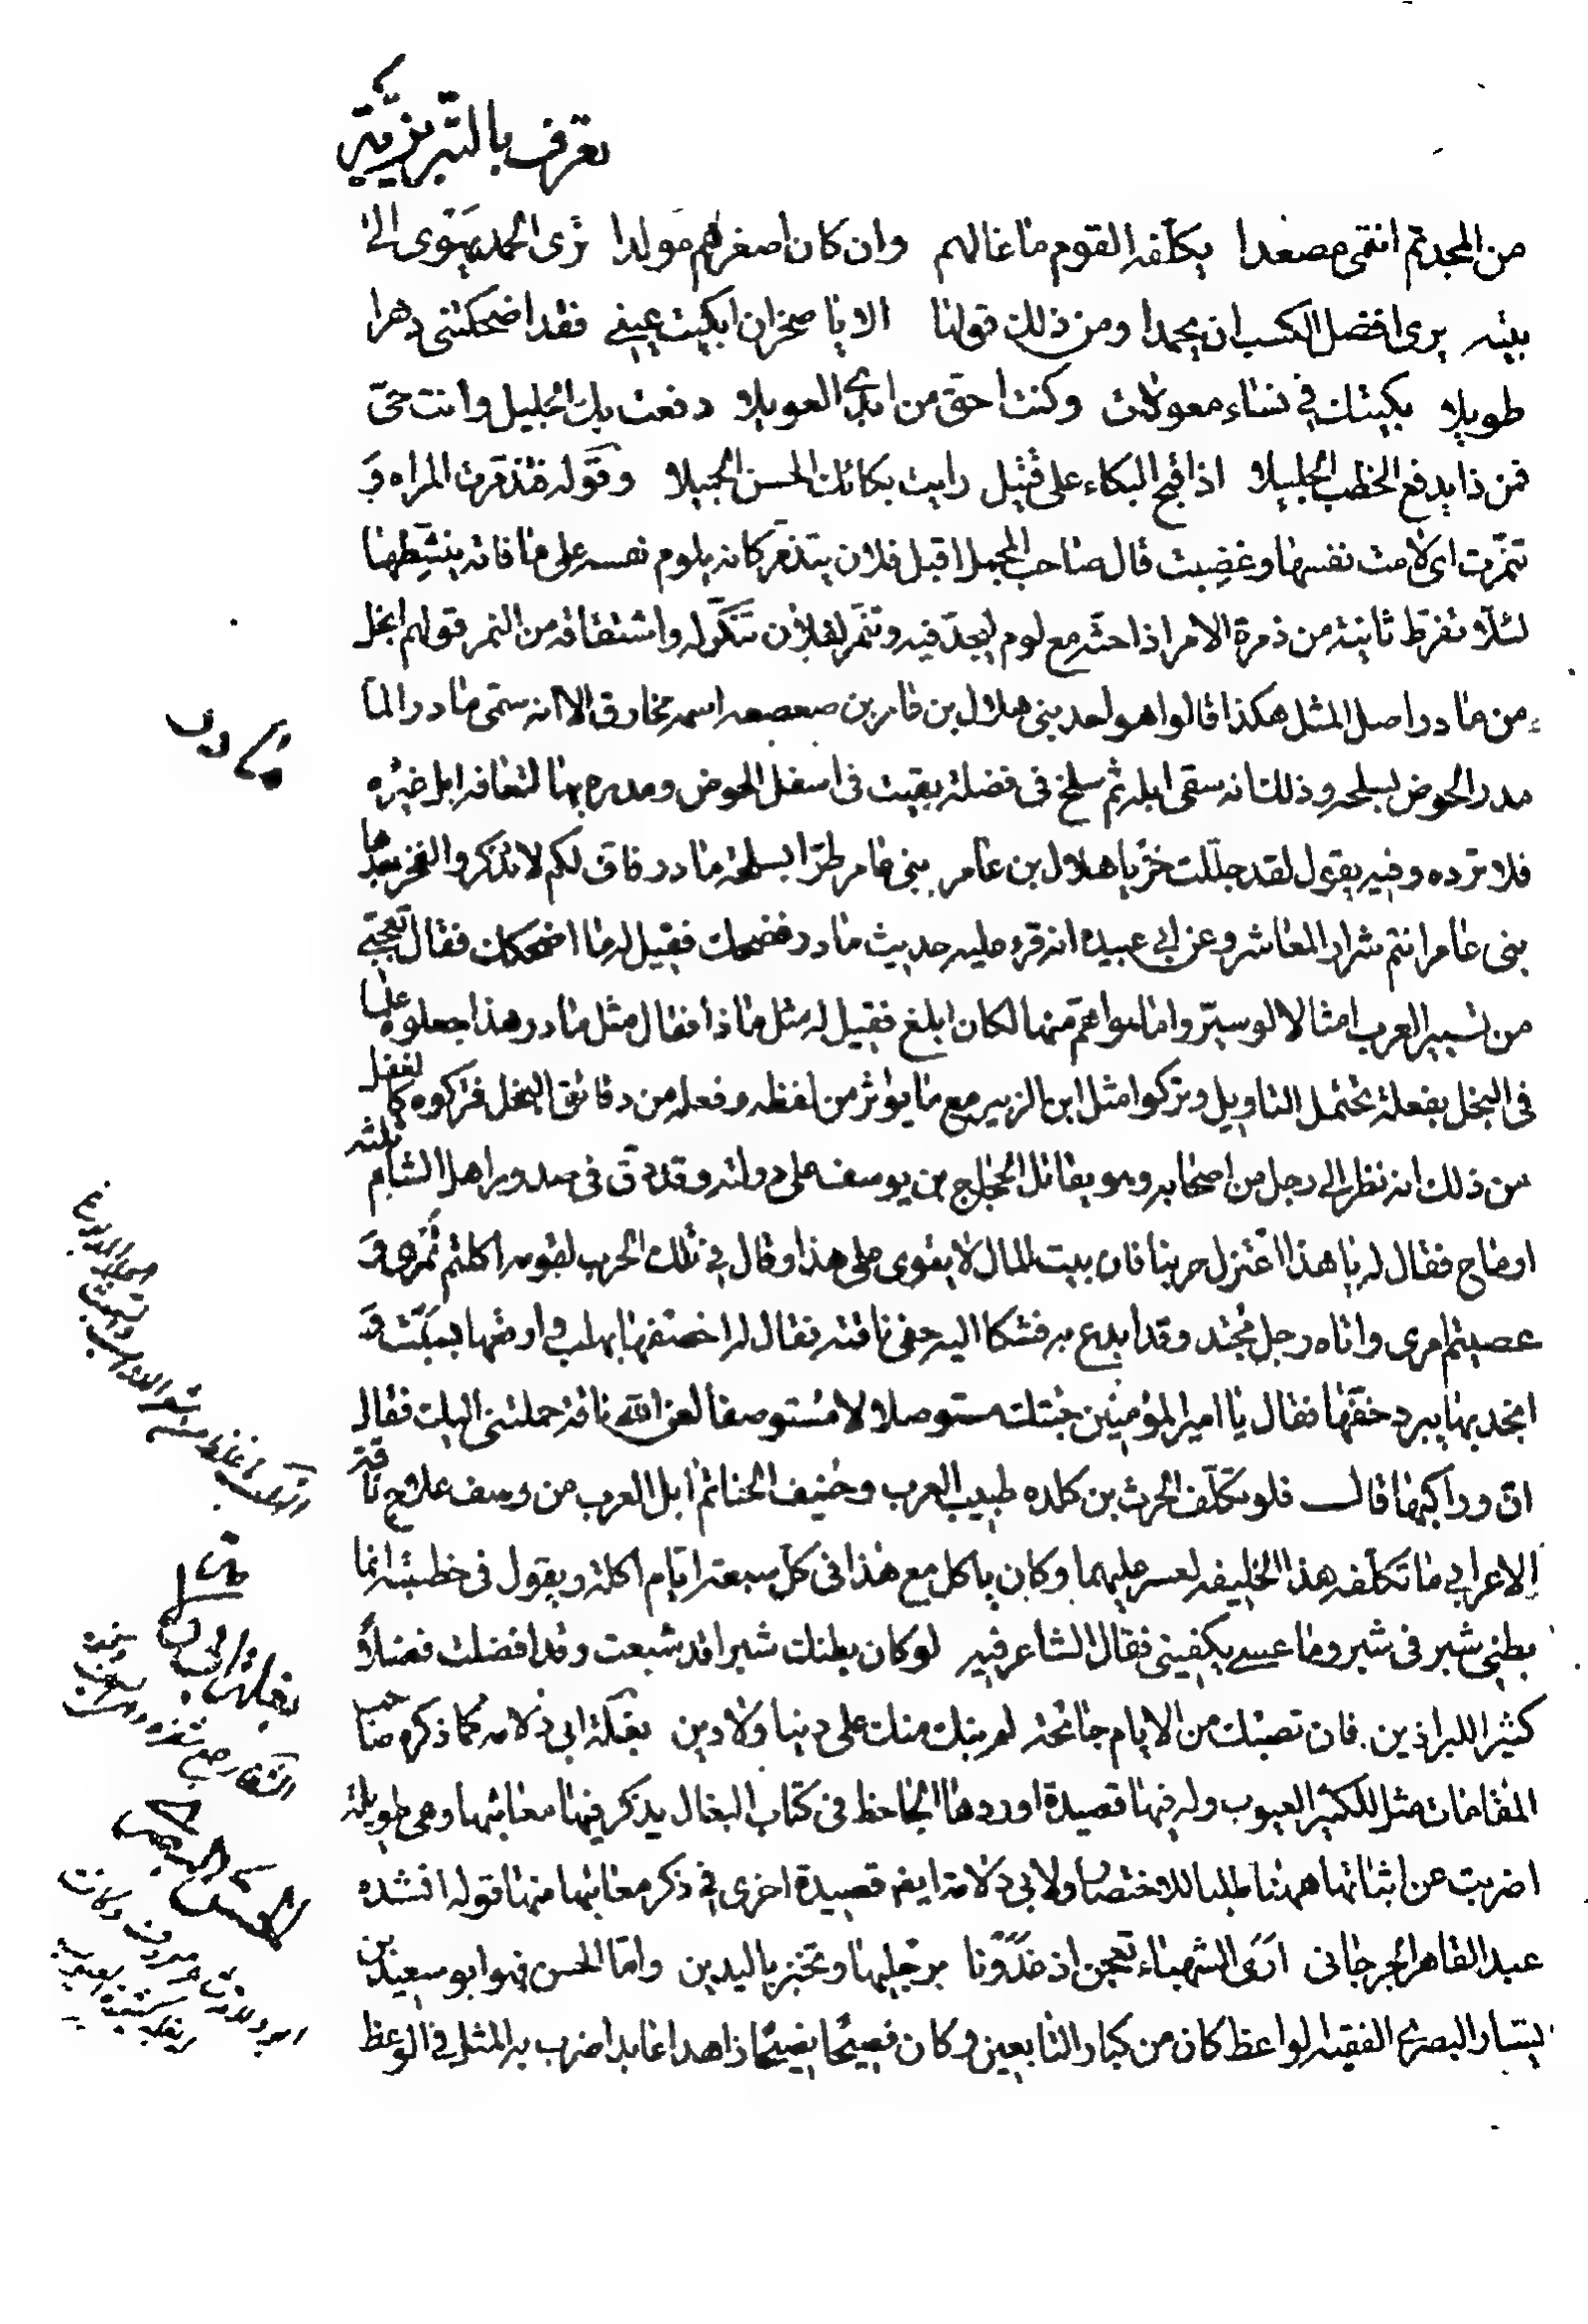 تعرف بالتبريزية
من المجد ثم انتمى مصعدا يكلفه القوم ما غالهم وان كان اصغرهم مولدا ترى الحمد يهوى الى
بيته يرى افضل الكسب ان يحمدا ومن ذلك قولها الا يا صخر ان ابكيت عينى فقد اضحكتنى دهرا
طويلا بكيتك في نساء معولات وكنت احق من ابدى العويلا دفعت بك الجليل وانت حى
فمن ذا يدفع الخطب الجليلا اذا قبح البكاء على قتيل رايت بكائك الحسن الجميلا وقوله فتذمرت المراه و
تنمرت اى لامت نفسها وغضبت قال صاحب المجمل اقبل فلان يتذمر كانه يلوم نفسه على ما فاته ينشطها
لئلا تفرط ثانية من ذمرة الامر اذا حثه مع لوم ليجد فيه وتنمر لفلان تنكر له واشتقاقه من النمر قولهم ابخل
من مادر اصل المثل هكذا قالوا هو احد بنى هلال بن عامر بن صعصعه اسمه مخارق الا انه سمى مادر الما
مدر الحوض بسلحه وذلك انه سقى ابله ثم سلح فى فضلة بقيت فى اسفل الحوض ومدره بها لتعافه ابل غيره
فلا ترده وفيه يقول لقد جللت خزيا هلال بن عامر بنى عامر طرا بسلحة مادر فاق لكم لا تذكروا الفخر بعدها
بنى عامر انتم شرار المعاشر وعن ابى عبيده انه قرء عليه حديث مادر فضحك فقيل له ما اضحكك فقال تعجبى
من تسيير العرب امثالا لو سيروا ما هو اهم منها لكان ابلغ فقيل له مثل ماذا فقال مثل مادر هذا جعلوه علما
فى البخل بفعلة تحتمل التاويل وتركوا مثل ابن الزبير مع ما يؤثر من لفظه وفعله من دقائق البخل فتركوه كالغفل
من ذلك انه نظر الى رجل من اصحابه وهو يقاتل الحجاج بن يوسف على دولته وقد دق فى صدور اهل الشام ثلثة
ارماح فقال له يا هذا اعتزل حربنا فان بيت المال لا يقوى على هذا وقال في تلك الحرب لقومه اكلتم تمرى و
عصيتم امرى واتاه رجل مجتد وقد ابدع به فشكا اليه حفى ناقته فقال له اخصفها بهلب وارقعها بسبت و
انجد بها يبرد خفها فقال يا امير المؤمنين جئتك مستوصلا لا مستوصفا لعن الله ناقة حملتنى اليك فقال
ان وراكبها قال فلو تكلف الحرث بن كلده طبيب العرب وحنيف الحناتم ابل العرب من وصف علاج ناقة
الاعرابى ما تكلفه هذا الخليفه لعسر عليهما وكان ياكل مع هذا فى كل سبعة ايام اكلة ويقول فى خطبته انما
بطنى شبر فى شبر وما عسى يكفينى فقال الشاعر فيه لو كان بطنك شبرا قد شبعت وقد افضلت فضلا
كثيرا للبراذين فان تصبك من الايام جائحة لم نبك منك على دنيا ولا دين بغلة ابى دلامه كما ذكره صاحب
المقامات مثل للكثير العيوب وله فيها قصيدة اوردها الجاحظ فى كتاب البغال يذكر فيها معائبها وهى طويلة
اضربت عن اثباتها ههنا طلبا للاختصار ولابى دلامة ايضا قصيدة اخرى فى ذكر معائبها منها قوله انشده
عبد القاهر الجرجانى ارى الشهباء تعجن اذ غدونا برجليها وتخبز باليدين واما الحسن فهو ابو سعيد بن
يسار البصرى الفقيه الواعظ كان من كبار التابعين وكان فصيحا زاهدا عابدا ضرب به المثل فى الوعظ
مادر
بغلة ابى
الحسن البصرى